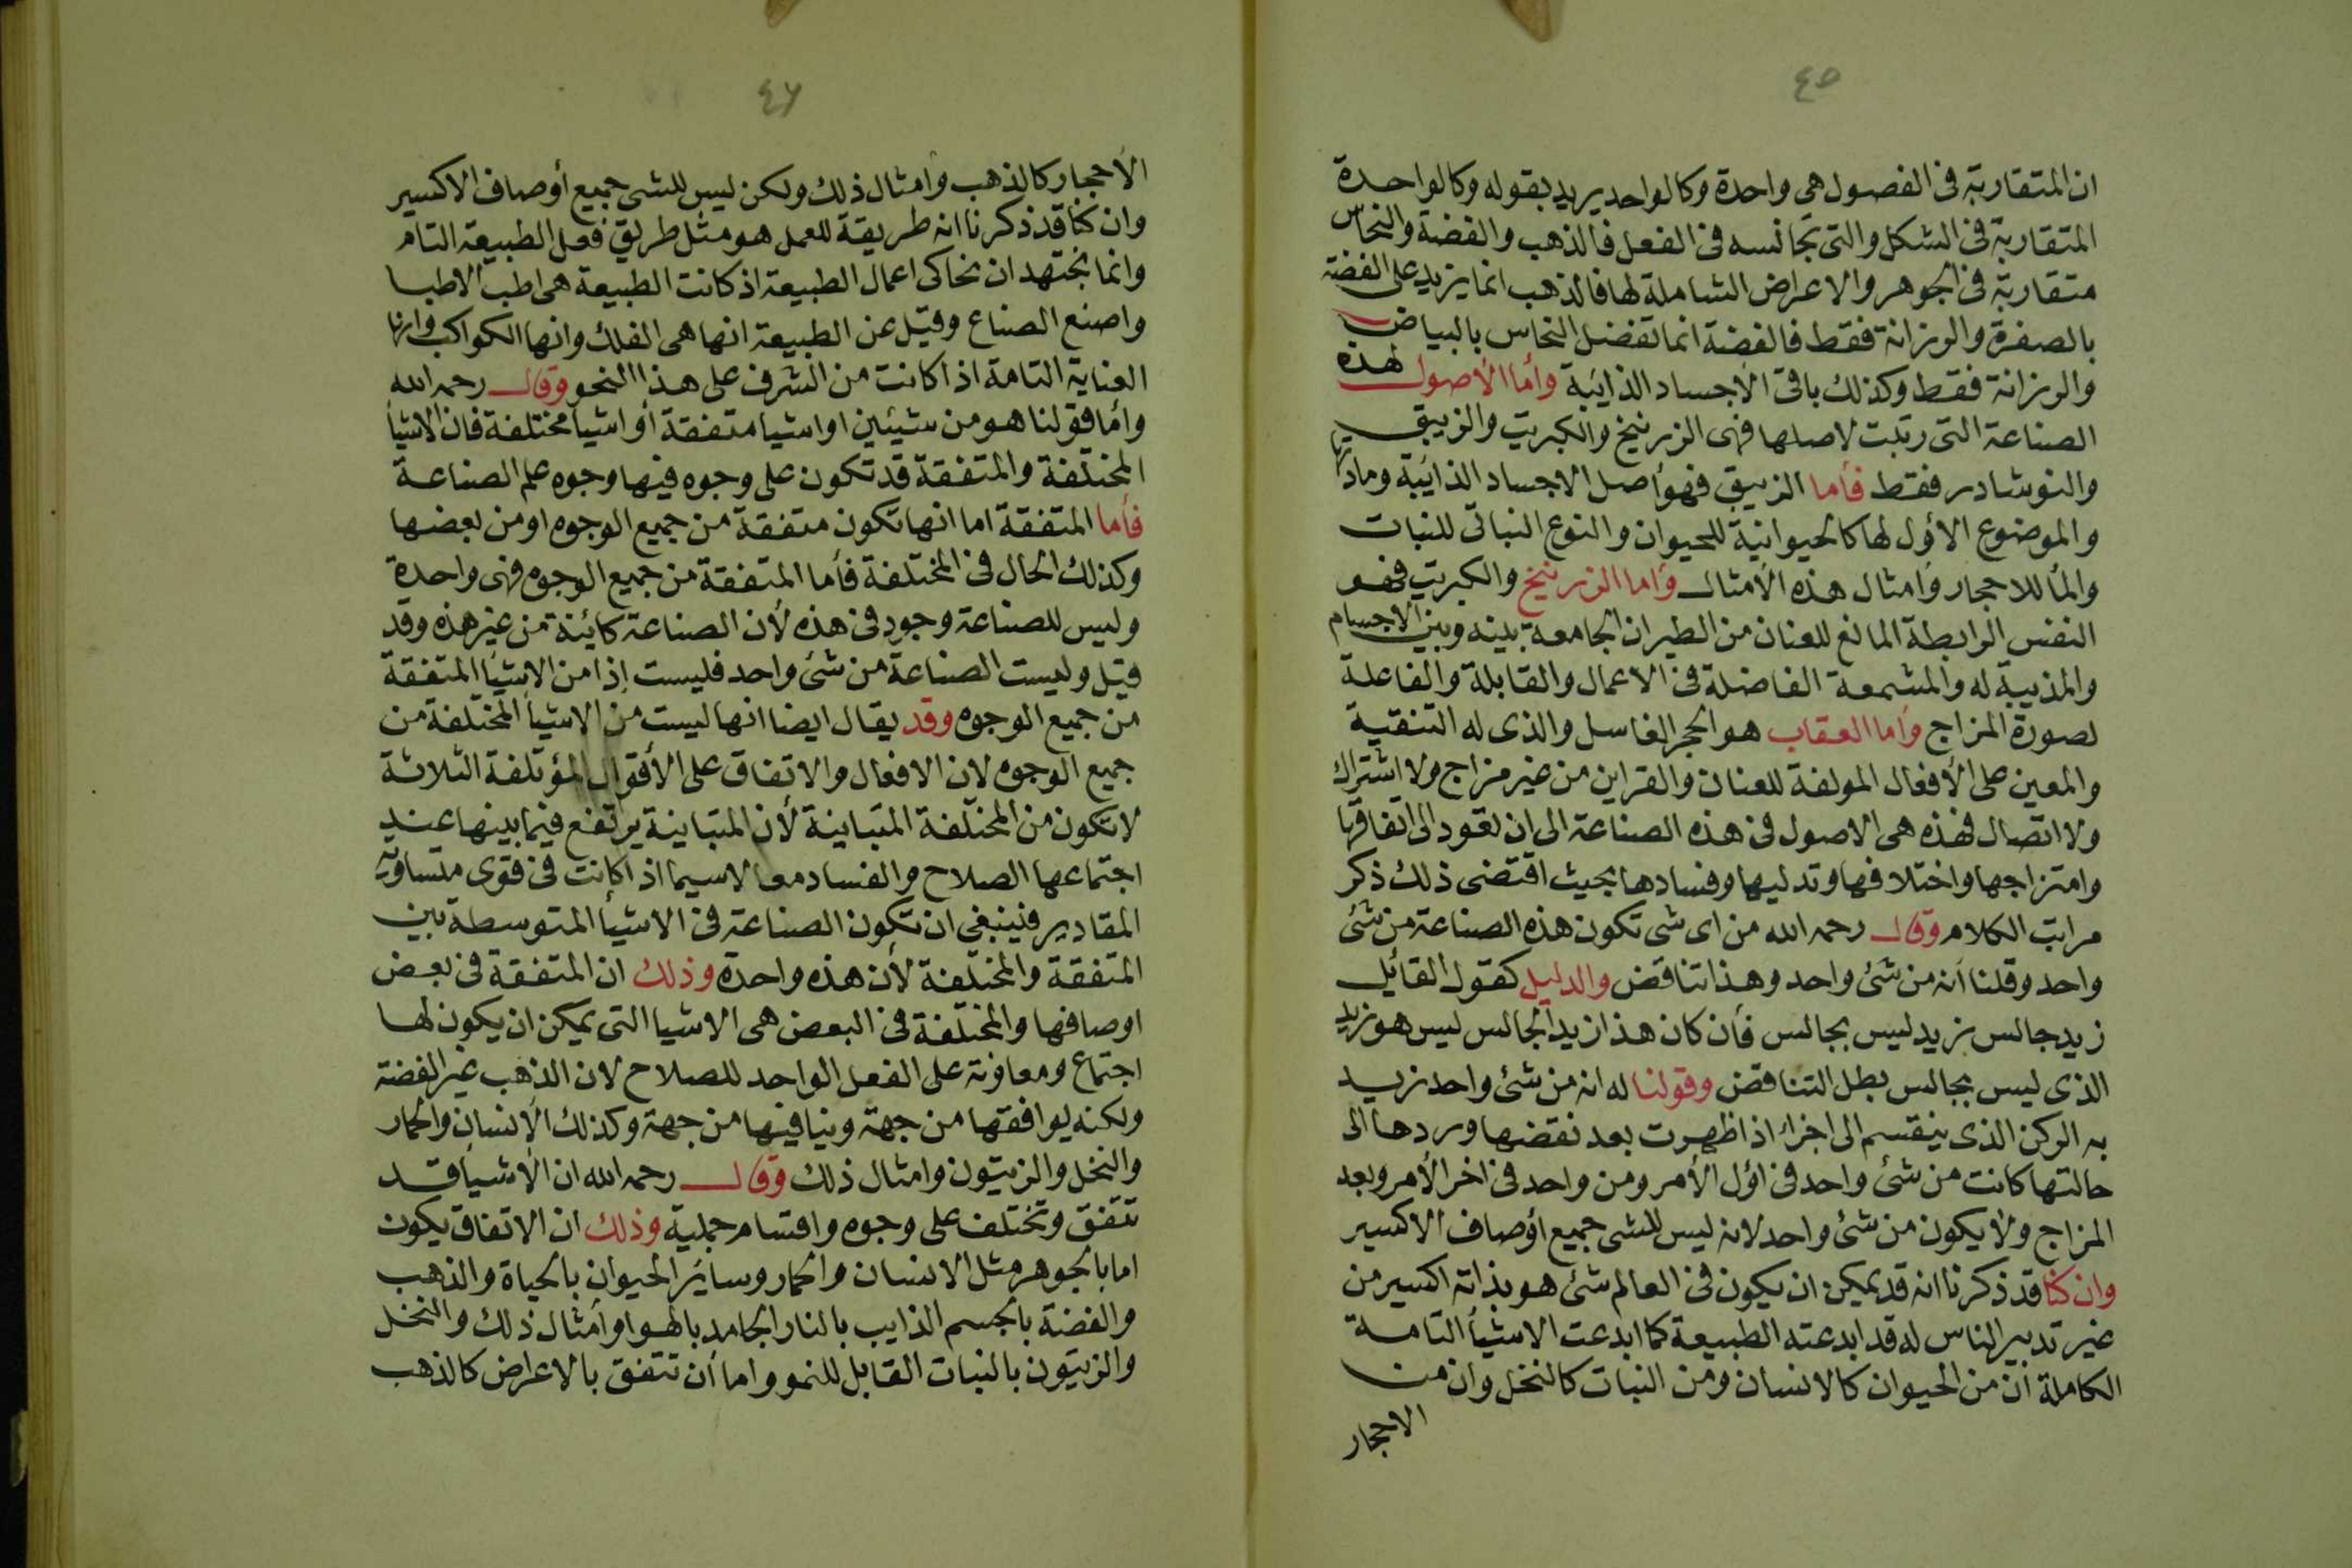 ٤٥
ان المتقاربة فى الفصول هى واحدة وكالواحد يريد بقوله وكالواحدة
المتقاربة فى الشكل والتى تجانسه فى الفعل فالذهب والفضة والنحاس
متقاربة فى الجوهر والاعراض الشاملة لها فالذهب انما يزيد على الفضة
بالصفرة والرزانة فقط فالفضة انما تفضل النحاس بالبياض
والرزانة فقط وكذلك باقى الأجساد الذايبة وأما الأصول لهذه
الصناعة التى رتبت لاصلها فهى الزرنيخ والكبريت والزيبق
والنوشادر فقط فأما الزيبق فهو أصل الاجساد الذايبة ومادتها
والموضوع الأول لها كالحيوانية للحيوان والنوع النباتى للنبات
والمأ للاحجار وامثال هذه الأمثال وأما الزرنيخ والكبريت فهو
النفس الرابطة المانع للعنان من الطيران الجامعة بينه وبين الاجسام
والمذيبة له والمشمعة الفاضلة فى الاعمال والقابلة والفاعلة
لصورة المزاج وأما العقاب هو الحجر الغاسل والذى له التنقية
والمعين على الأفعال المولفة للعنان والقراين من غير مزاج ولا اشتراك
ولا اتصال فهذه هى الاصول فى هذه الصناعة الى ان نعود الى اتفاقها
وامتزاجها واختلافها وتدليها وفسادها بحيث اقتضى ذلك ذكر
مراتب الكلام وقال رحمه الله من اى شى تكون هذه الصناعة من شئ
واحد وقلنا أنه من شئ واحد وهذا تناقض والدليل كقول القائيل
زيد جالس زيد ليس بجالس فأن كان هذا زيد الجالس ليس هو زيد
الذى ليس بجالس بطل التناقض وقولنا له انه من شئ واحد نريد
به الركن الذى ينقسم الى اجزا اذا ظهرت بعد نقضها وردها الى
حالتها كانت من شئ واحد فى اول الأمر ومن واحد فى اخر الأمر وبعد
المزاج ولا يكون من شئ واحد لانه ليس للشى جميع أوصاف الاكسير
وان كنا قد ذكرنا انه قد يمكن ان يكون فى العالم شئ هو بذاته اكسير من
غير تدبير الناس له قد ابدعته الطبيعة كما ابدعت الاشيأ التامة
الكاملة أن من الحيوان كالانسان ومن النبات كالنخل وان من
الاحجار
٤٦
الأحجار كالذهب وامثال ذلك ولكن ليس للشى جميع أوصاف الاكسير
وان كنا قد ذكرنا انه طريقة للعمل هو مثل طريق فعل الطبيعة التام
وانما نجتهد ان نحاكى اعمال الطبيعة اذ كانت الطبيعة هى اطب الاطبا
واصنع الصناع وقيل عن الطبيعة انها هى الفلك وانها الكواكب وانها
العناية التامة اذا كانت من الشرف على هذا النحو وقال رحمه الله
وأما قولنا هو من شيئين او اشيا متفقة أو اشيا مختلفة فان الاشيأ
المختلفة والمتفقة قد تكون على وجوه فيها وجوه علم الصناعة
فأما المتفقة اما انها تكون متفقة من جميع الوجوه او من بعضها
وكذلك الحال فى المختلفة فأما المتفقة من جميع الوجوه فهى واحدة
وليس للصناعة وجود فى هذه لأن الصناعة كائنة من غير هذه وقد
قيل وليست الصناعة من شئ واحد فليست إذا من الاشيأ المتفقة
من جميع الوجوه وقد يقال ايضا انها ليست من الاشيأ المختلفة من
جميع الوجوه لان الافعال والاتفاق على الأقوال المؤتلفة الثلاثة
لا تكون من المختلفة المتباينة لأن المتباينة يرتفع فيما بينها عند
اجتماعها الصلاح والفساد معا لاسيما اذا كانت فى قوى متساوية
المقادير فينبغى ان تكون الصناعة فى الاشيأ المتوسطة بين
المتفقة والمختلفة لأن هذه واحدة وذلك ان المتفقة فى بعض
اوصافها والمختلفة فى البعض هى الاشيا التى يمكن ان يكون لها
اجتماع ومعاونة على الفعل الواحد للصلاح لان الذهب غير الفضة
ولكنه يوافقها من جهة وينافيها من جهة وكذلك الأنسان والحمار
والنخل والزيتون وامثال ذلك وقال رحمه الله ان الأشيأ قد
تتفق وتختلف على وجوه واقسام جملية وذلك ان الاتفاق يكون
اما بالجوهر مثل الانسان والحمار وساير الحيوان بالحياة والذهب
والفضة بالجسم الذايب بالنار الجامد بالهوا وأمثال ذلك والنخل
والزيتون بالنبات القابل للنمو واما أن تتفق بالاعراض كالذهب